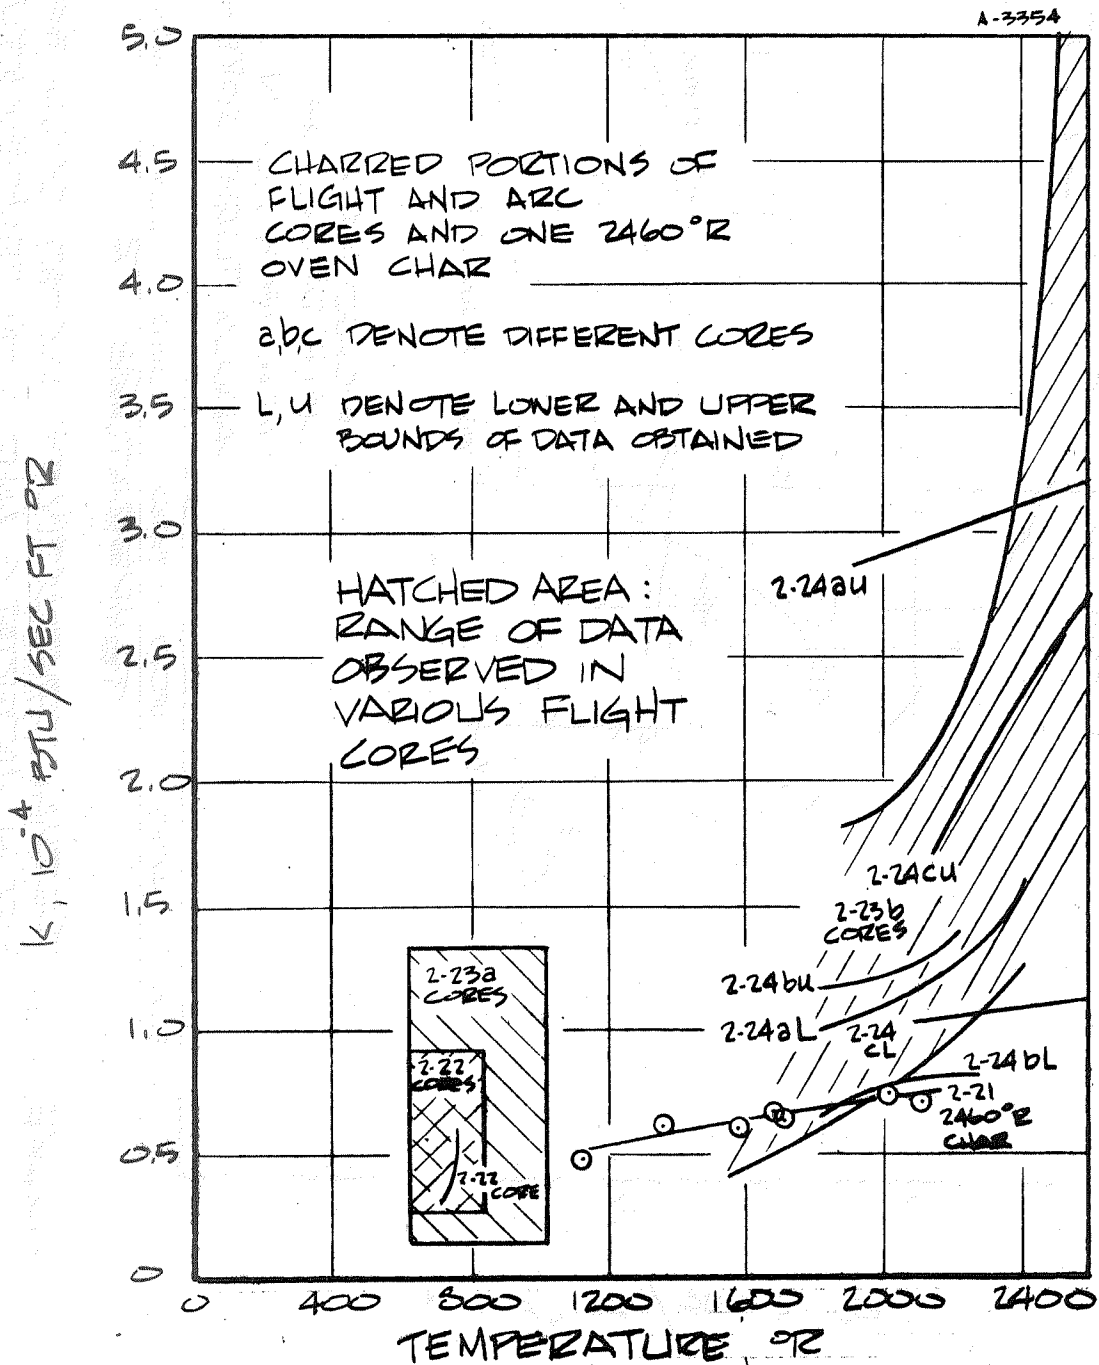 A-3354
5.0
4.5
4.0
3.5
3.0
2.5
2.0
1.5
1.0
0.5
0
K, 10-4 BTU/SEC FT °R
CHARRED PORTIONS OF
FLIGHT AND ARC
CORES AND ONE 2460°R
OVEN CHAR
a,b,c DENOTE DIFFERENT CORES
L, U DENOTE LOWER AND UPPER
BOUNDS OF DATA OBTAINED
HATCHED AREA:
RANGE OF DATA
OBSERVED IN
VARIOUS FLIGHT
CORES
2-24aU
2-24cU
2-23b
CORES
2-24bU
2-24aL
2-24
CL
2-24bL
2-21
2460°R
CHAR
2-23a
CORES
2-22
CORES
2-22
CORE
0 400 800 1200 1600 2000 2400
TEMPERATURE °R